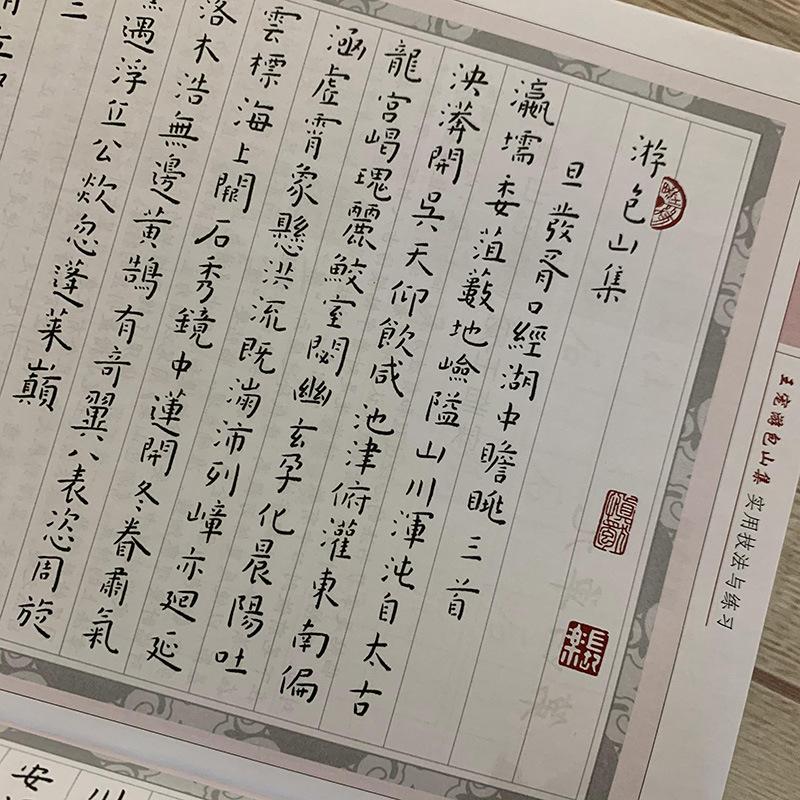 王宠游包山集 实用技法与练习
游包山集
旦發胥口經湖中瞻眺三首
瀛壖委菹藪地嶮隘山川渾沌自太古
泱漭開吳天仰飲咸池津俯灌東南偏
龍宮嵑瑰麗鮫室閟幽玄孕化晨陽吐
涵虛霄象懸洪流既滂沛列嶂亦迴延
雲標海上闕石秀鏡中蓮開冬眷肅氣
落木浩無邊黃鵠有奇翼八表恣周旋
遇浮丘公欻忽蓬萊巔
三
川
安